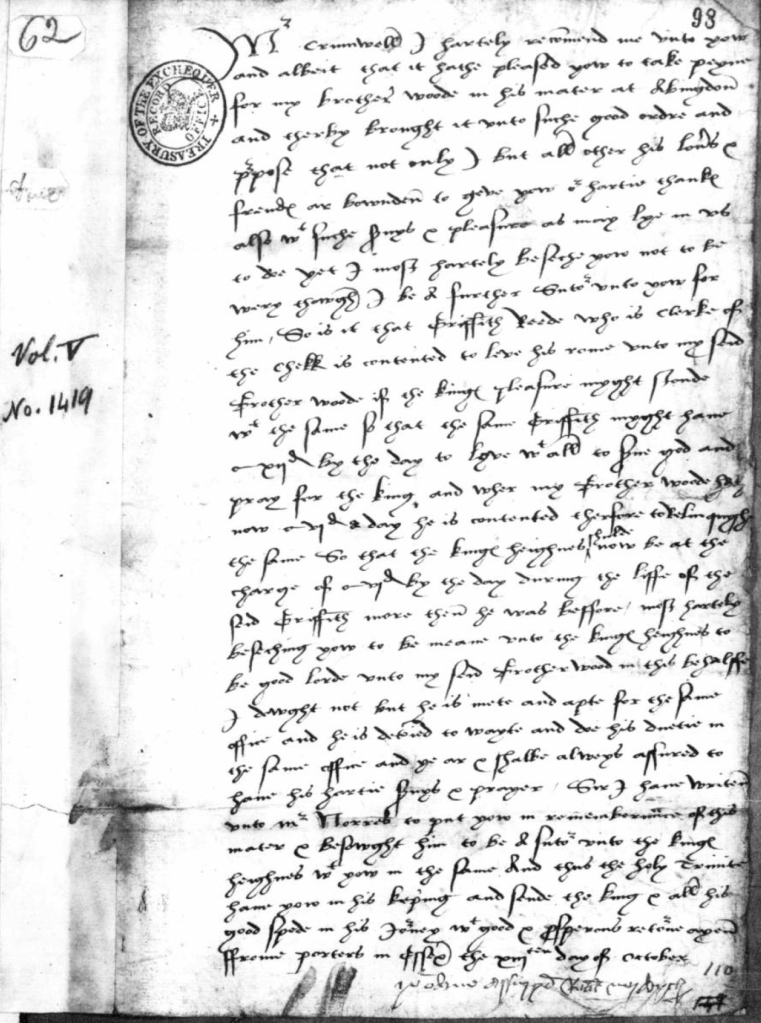 62
98
TREASURY OF THE EXCHEQUER
RECORD OFFICE
Vol. V
No. 1419
Mr Crumwell I hartely recommend me unto yow
and albeit that it hathe pleased yow to take peyne
for my brother woode in his mater at Abingdon
and therby brought it unto suche good ordre and
prpose that not only I but all other his lovrs &
frends ar bownden to geve yow or hartie thanks
also wt suche srvys & pleasure as may lye in us
to doe yet I most hartely beseche yow not to be
wery thowgh I be A further Sutor unto yow for
him, So is it that Griffith Reede who is clerke of
the chekk is contented to leve his rome unto my seid
Brother woode if the kings pleasure myght stonde
wt the same so that the same Griffith myght have
xijd by the day to lyve wt all to srve god and
pray for the king, and wher my Brother woode hath
now vjd A day he is contented therfore to relinquyshe
the same So that the kings heighnes shulde now be at the
charge of vjd by the day during the liffe of the
seid Griffith more then he was beffore, most hartely
beseching yow to be meane unto the kings heighnes to
be good lorde unto my seid Brother wood in this behalffe
I dowght not but he is mete and apte for the same
office and he is to wayte and doe his duetie in
the same office and ye ar & shalbe alweys assured to
have his hartie srvys & prayer, Sir I have writen
unto mr Norres to put yow in remembraunce of this
mater & besowght him to be A sutor unto the kings
heighnes wt yow in the same And thus the holy Trinite
have yow in his keping and sende the king & all his
good spede in his Jorney wt good & prosperous retorne ayen
ffrome porters in Essex the xiijth day of October
110